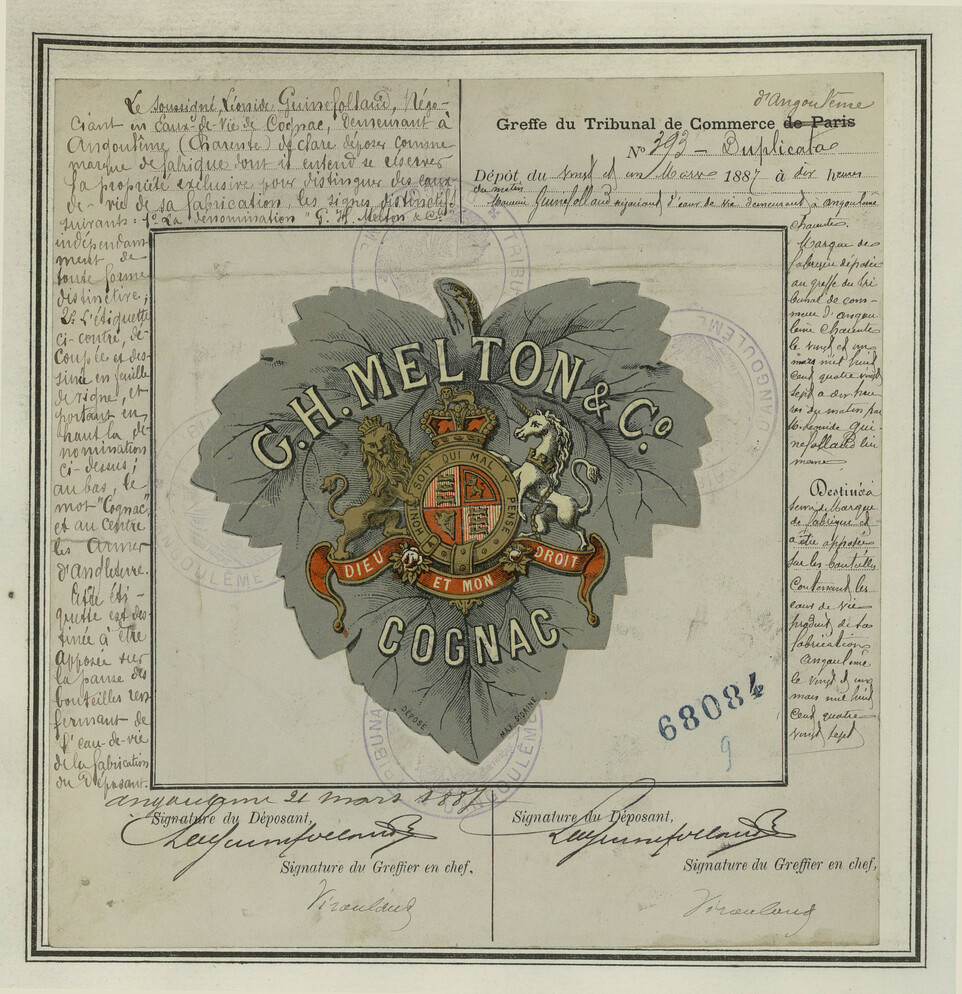 Le soussigné, Léonide Guinefolleaud, Négo-
ciant en Eaux-de-Vie de Cognac, demeurant à
Angoulême (Charente) déclare déposer comme
marque de fabrique dont il entend se réserver
la propriété exclusive pour distinguer des eaux-
de-vie de sa fabrication, les signes distinctifs
suivants: 1º La dénomination "G. H. Melton & Cº"
indépendam
ment de
toute forme
distinctive;
2º L'étiquette
ci-contre, dé-
coupée et des-
sinée en feuille
de vigne, et
portant en
haut la dé-
nomination
ci-dessus;
au bas, le
mot "Cognac"
et au Centre
les Armes
d'angleterre.
Cette éti-
quette est des
tinée à être
apposée sur
la panse des
bouteilles ren
fermant de
l'eau-de-vie
de la fabrication
du Déposant.
angoulême 21 mars 1887
d'Angoulême
Greffe du Tribunal de Commerce de Paris
Nº 393 - Duplicata
Dépôt du vingt et un Mars 1887 à dix heures
du matin
Guinefolleaud négociant d'eaux de vie demeurant à angoulême
charente.
Marque de
fabrique déposée
au greffe du tri
bunal de com-
merce d'angou
lême charente
le vingt et un
mars mil huit
cent quatre vingt
sept à dix heu
res du matin par
M. Léonide Gui-
nefolleaud lui
même
Destinée à
servir de Marque
de fabrique et
à être apposée
sur les bouteilles
Contenant les
eaux de vie
produit de sa
fabrication
angoulême
le vingt et un
mars mil huit
cent quatre
vingt sept
G.H. MELTON & Cº
HONI SOIT QUI MAL Y PENSE
DIEU ET MON DROIT
COGNAC
DÉPOSÉ
MAX. DIDAINE
68084
9
Signature du Déposant,
Signature du Greffier en chef,
Signature du Déposant,
Signature du Greffier en chef,